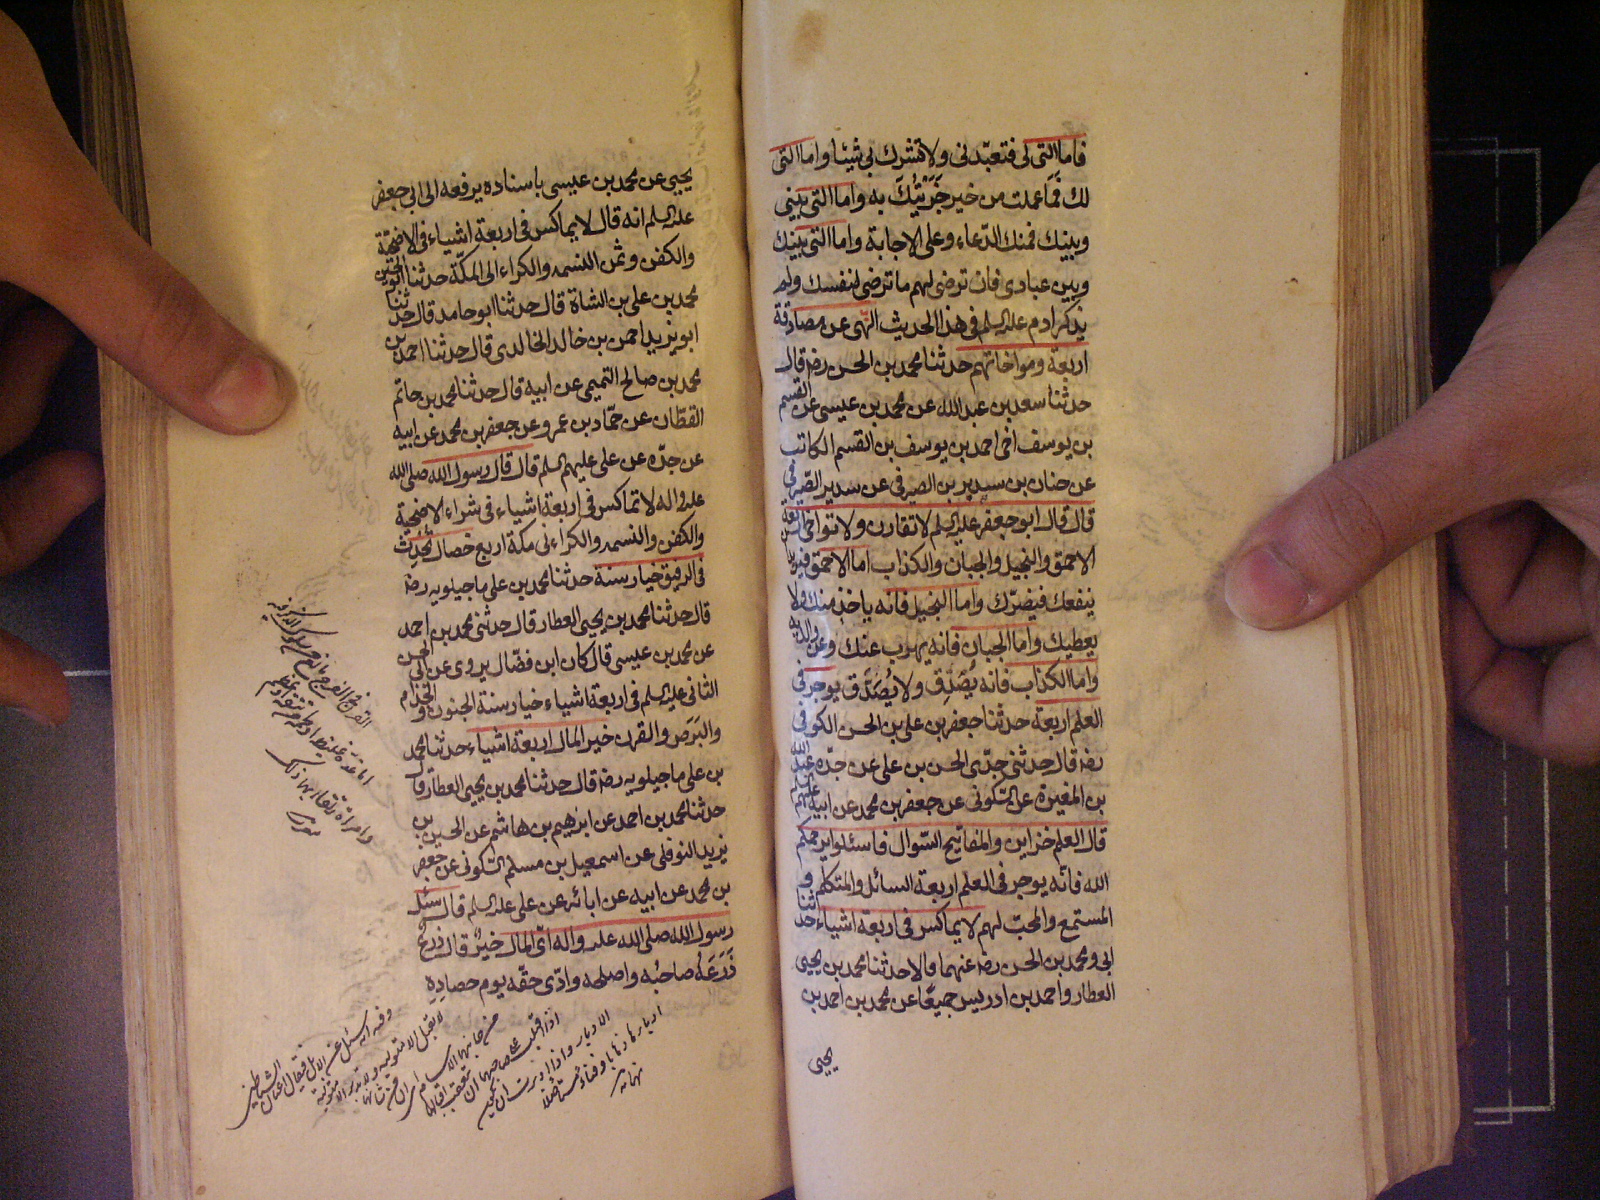 فاما التى لى فتعبدنى ولا تشرك بى شيئا واما التى
لك فما عملت من خير جزيتك به واما التى بينى
وبينك فمنك الدعاء وعلى الاجابة واما التى بينك
وبين عبادى فان ترضى لهم ما ترضى لنفسك ولم
يذكر ادم عليه السلم فى هذا الحديث النهى عن مصادقة
اربعة ومواخاتهم حدثنا محمد بن الحسن رضه قال
حدثنا سعد بن عبد الله عن محمد بن عيسى عن القسم
بن يوسف اخى احمد بن يوسف بن القسم الكاتب
عن حنان بن سدير بن الصيرفى عن سدير الصيرفى
قال قال ابو جعفر عليه السلم لا تقارن ولا تواخ اربعة
الاحمق والبخيل والجبان والكذاب اما الاحمق فيريد ان
ينفعك فيضرك واما البخيل فانه ياخذ منك ولا
يعطيك واما الجبان فانه يهرب عنك وعن والديه
واما الكذاب فانه يصدق ولا يصدق يوجر فى
العلم اربعة حدثنا جعفر بن على بن الحسن الكوفى
رضه قال حدثنى جدى الحسن بن على عن جده عبد الله
بن المغيرة عن السكونى عن جعفر بن محمد عن ابيه عليهم السلم
قال العلم خزاين والمفاتيح السوال فاسئلوا يرحمكم
الله فانه يوجر فى العلم اربعة السائل والمتكلم و
المستمع والمحب لهم لا يماكس فى اربعة اشياء حدثنا
ابى ومحمد بن الحسن رضه عنهما قالا حدثنا محمد بن يحيى
العطار واحمد بن ادريس جميعا عن محمد بن احمد بن
يحيى
يحيى عن محمد بن عيسى باسناده يرفعه الى ابى جعفر
عليه السلم انه قال لا يماكس فى اربعة اشياء فى الاضحية
والكفن وثمن النسمه والكراء الى المكة حدثنا ابو الحسين
محمد بن على بن الشاة قال حدثنا ابو حامد قال حدثنا
ابو يزيد احمد بن خالد الخالدى قال حدثنا احمد بن
محمد بن صالح التميمى عن ابيه قال حدثنا محمد بن حاتم
القطان عن حماد بن عمرو عن جعفر بن محمد عن ابيه
عن جده عن على عليهم السلم قال قال رسول الله صلى الله
عليه واله لا تماكس فى اربعة اشياء فى شراء الاضحية
والكفن والنسمه والكراء الى مكة اربع خصال يحدث
فى الرقيق خيار سنة حدثنا محمد بن على ماجيلويه رضه
قال حدثنا محمد بن يحيى العطار قال حدثنى محمد بن احمد
عن محمد بن عيسى قال كان ابن فضال يروى عن ابى الحسن
الثانى عليه السلم فى اربعة اشياء خيار سنة الجنون والجذام
والبرص والقرن خير المال اربعة اشياء حدثنا محمد
بن على ماجيلويه رضه قال حدثنا محمد بن يحيى العطار قال
حدثنا محمد بن احمد عن ابرهيم بن هاشم عن الحسين بن
يزيد النوفلى عن اسمعيل بن مسلم السكونى عن جعفر
بن محمد عن ابيه عن ابائه عن على عليه السلم قال سئل
رسول الله صلى الله عليه واله اى المال خير قال زرع
زرعه صاحبه واصلحه وادى حقه يوم حصاده
القرن فى الفرج